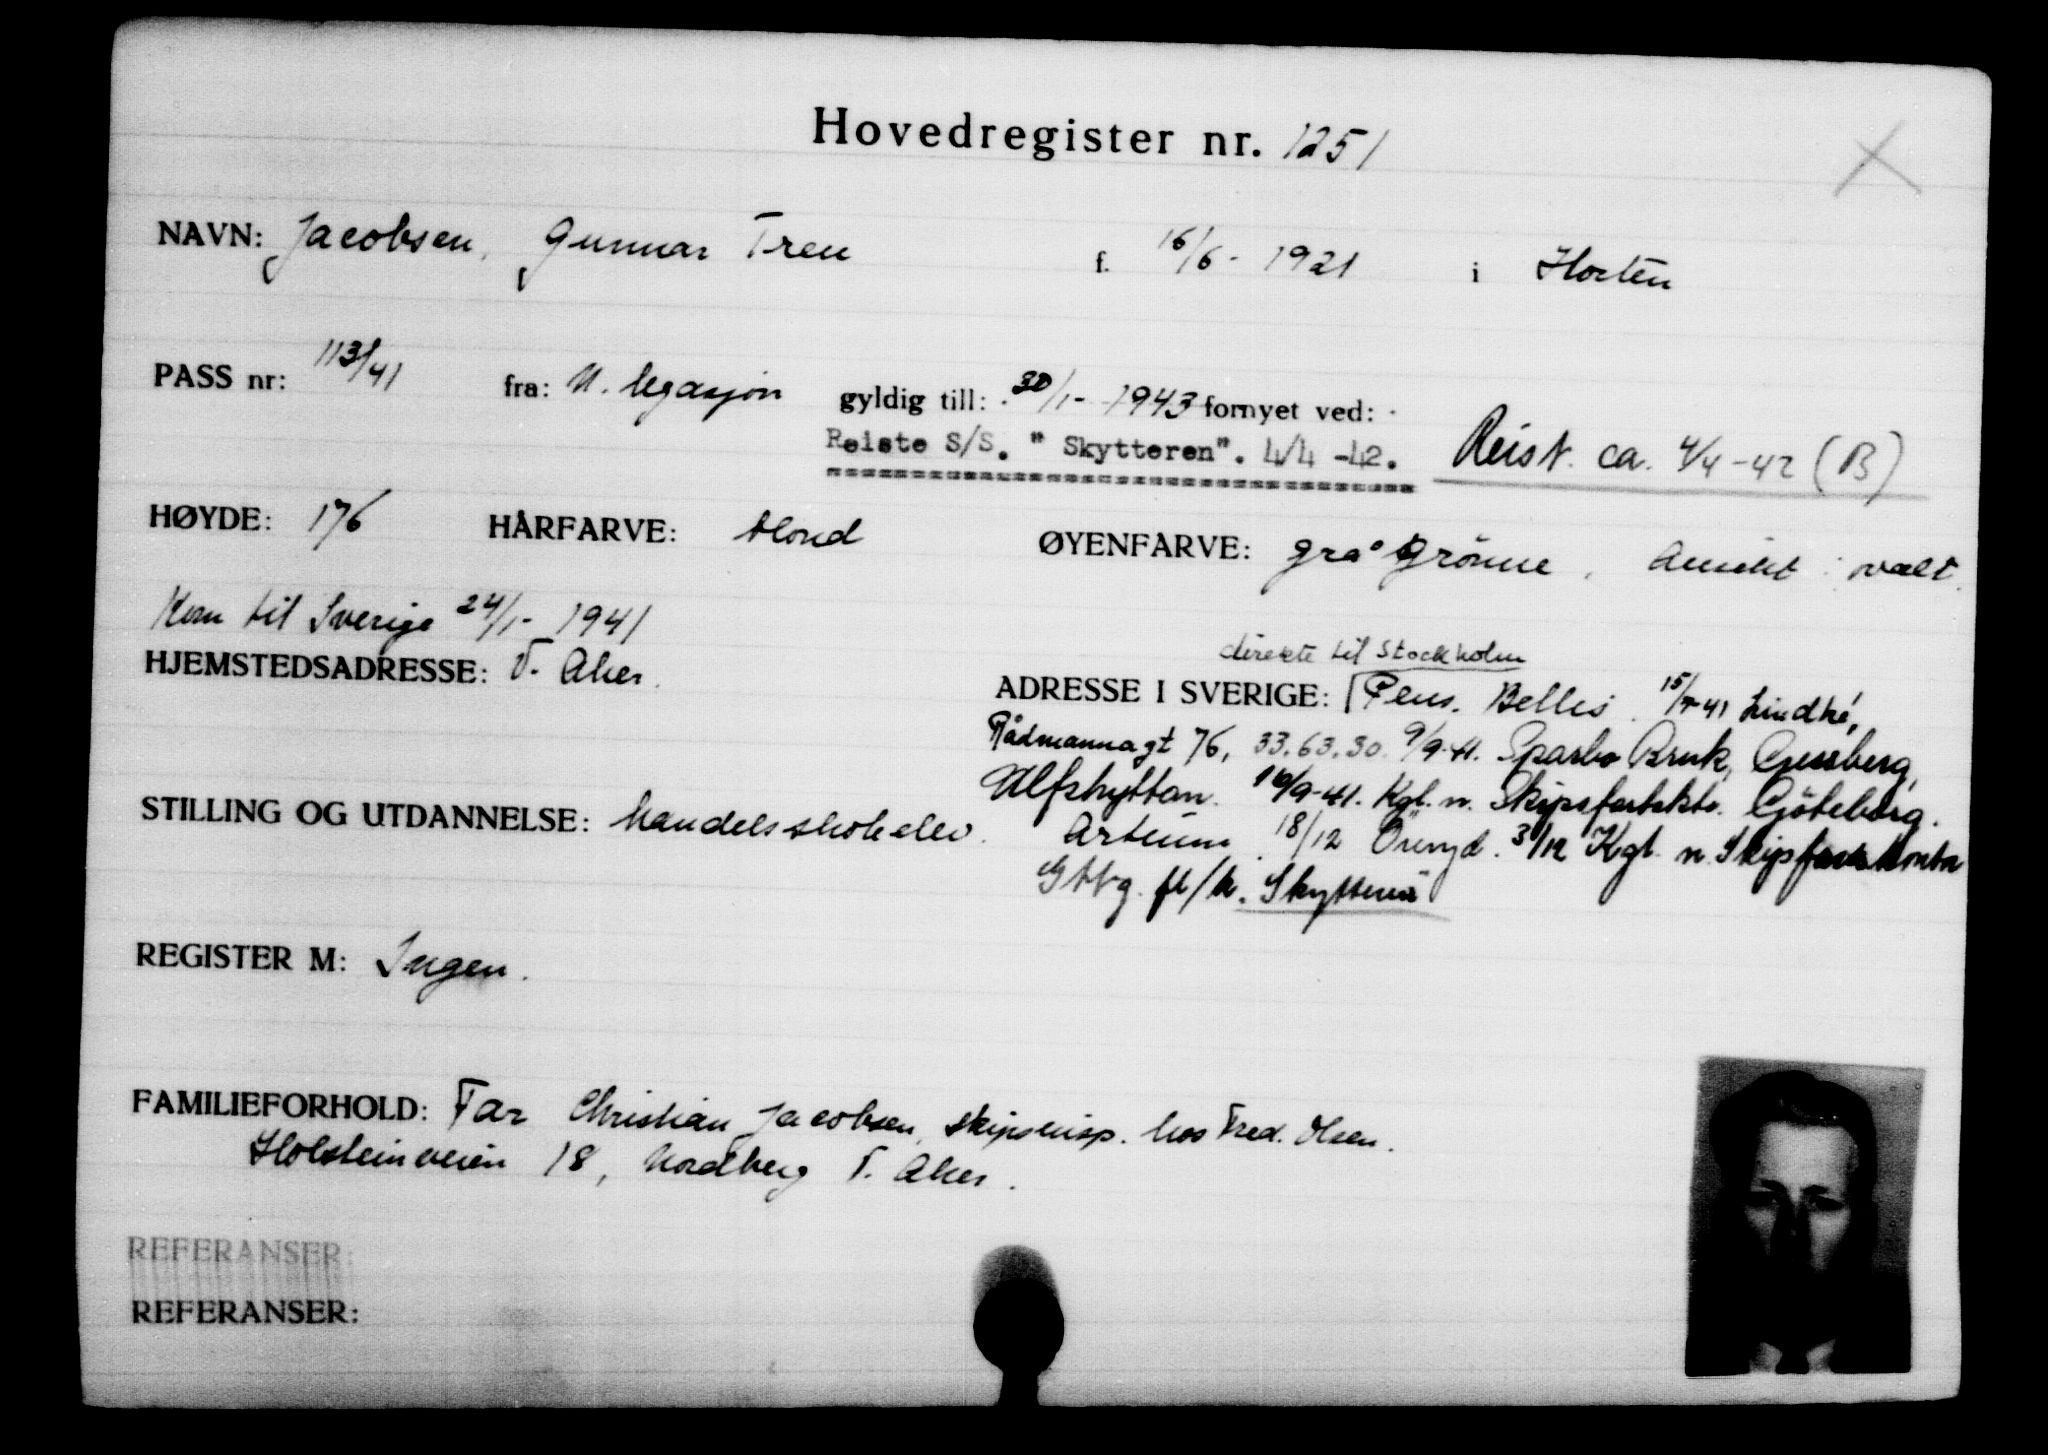 Hovedregister nr. 1251
NAVN: Jacobsen, Gunnar Tren f. 16/6- 1921 i Horten
PASS nr: 113/41 fra: N. legasjon gyldig till: 30/1- 1943 fornyet ved:
Reiste S/S. " Skytteren". 4/4 -42. Reist. ca. 4/4-42 (B)
HØYDE: 176 HÅRFARVE: blond ØYENFARVE: grå grönne, Ansikt: ovalt.
Kom til Sverige 24/1- 1941
HJEMSTEDSADRESSE: V. Aker.
direkte til Stockholm
ADRESSE I SVERIGE: Pens. Bellis. 15/7-41 Lindhé,
Rådmannagt 76, 33.63.30. 9/9-41. Sparbo Bruk,
Ulfshyttan. 16/9-41. Kgl. n. Skipsfartskto. Göteborg.
STILLING OG UTDANNELSE: handelsskoleelev.
Artium. 18/12 Öreryd. 3/12 Kgl. n. Skipsfartskontor
Gtbg. fl/k. Skytteren
REGISTER M: Ingen.
FAMILIEFORHOLD: Far Christian Jacobsen, skipsinsp. hos Fred. Olsen.
Holsteinveien 18, Nordberg V. Aker.
REFERANSER:
REFERANSER: